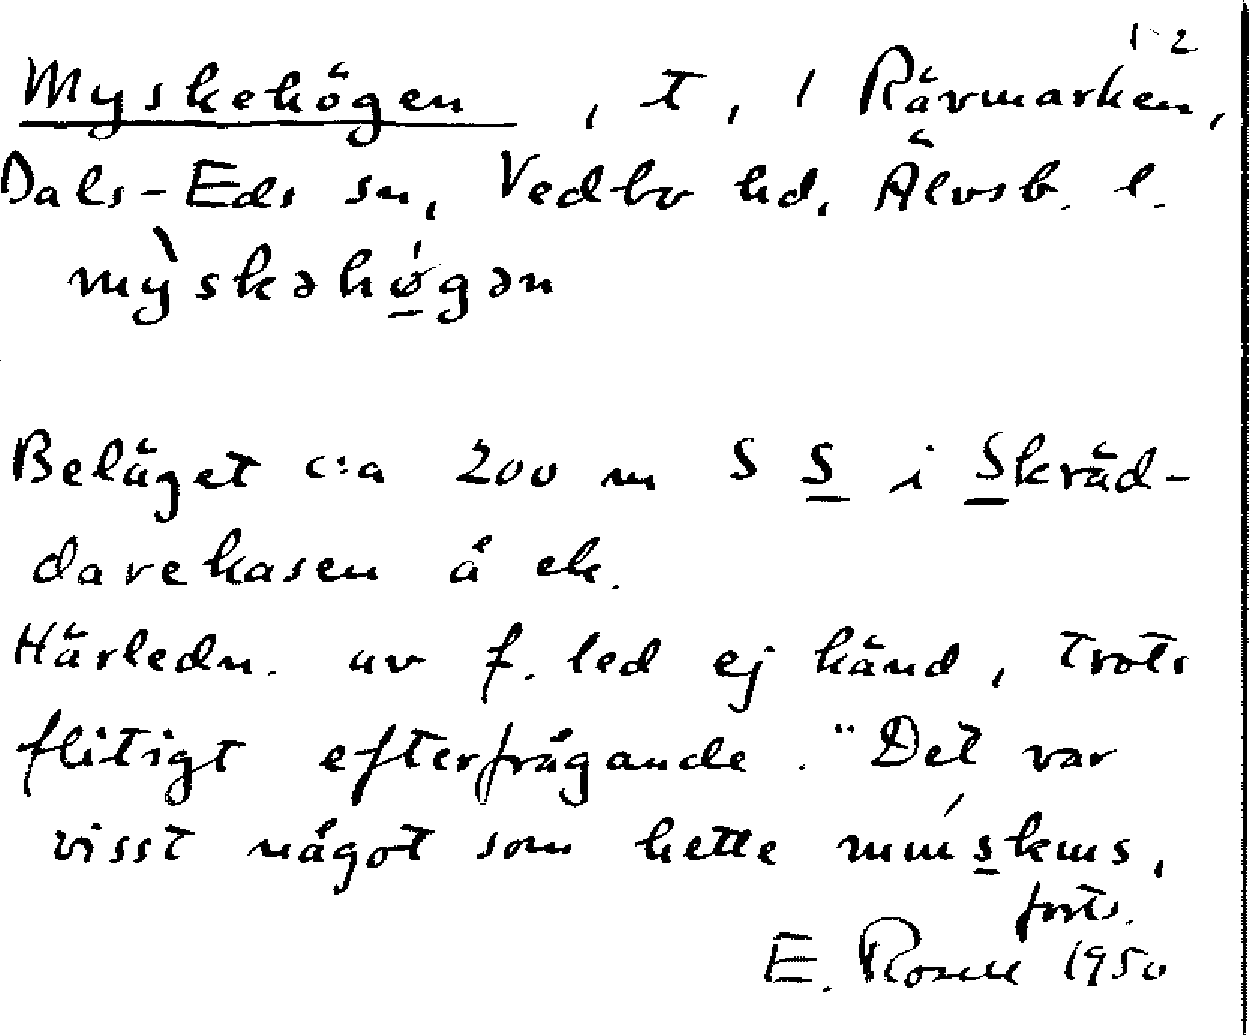 1-2
Myskehögen, t, i Rävmarken,
Dals-Eds sn, Vedbo hd, Älvsb. l.
mỳskəhǿ̱gən
Beläget c:a 200 m S S̲ i S̲kräd-
darekasen å ek.
Härledn. av f. led ej känd, trots
flitigt efterfrågande. "Det var
visst något som hette
forts.
E. Rosell 1950